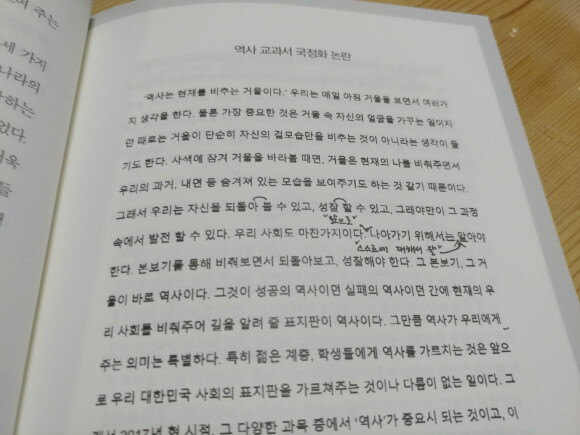 며 주는
세 가지
나라의
하는
였다.
더욱
들
해
역사 교과서 국정화 논란
'역사는 현재를 비추는 거울이다.' 우리는 매일 아침 거울을 보면서 여러가
지 생각을 한다. 물론 가장 중요한 것은 거울 속 자신의 얼굴을 가꾸는 일이지
만 때로는 거울이 단순히 자신의 겉모습만을 비추는 것이 아니라는 생각이 들
기도 한다. 사색에 잠겨 거울을 바라볼 때면, 거울은 현재의 나를 비춰주면서
우리의 과거, 내면 등 숨겨져 있는 모습을 보여주기도 하는 것 같기 때문이다.
그래서 우리는 자신을 되돌아 볼 수 있고, 성찰 할 수 있고, 그래야만이 그 과정
속에서 발전 할 수 있다. 우리 사회도 마찬가지이다. 나아가기 위해서는 알아야
"앞으로"
스스로에 대해서 잘
한다. 본보기를 통해 비춰보면서 되돌아보고, 성찰해야 한다. 그 본보기, 그 거
울이 바로 역사이다. 그것이 성공의 역사이던 실패의 역사이던 간에 현재의 우
리 사회를 비춰주어 길을 알려 줄 표지판이 역사이다. 그만큼 역사가 우리에게
주는 의미는 특별하다. 특히 젊은 계층, 학생들에게 역사를 가르치는 것은 앞으
로 우리 대한민국 사회의 표지판을 가르쳐주는 것이나 다름이 없는 일이다. 그
2017년 현 시점, 그 다양한 과목 중에서 '역사'가 중요시 되는 것이고, 이